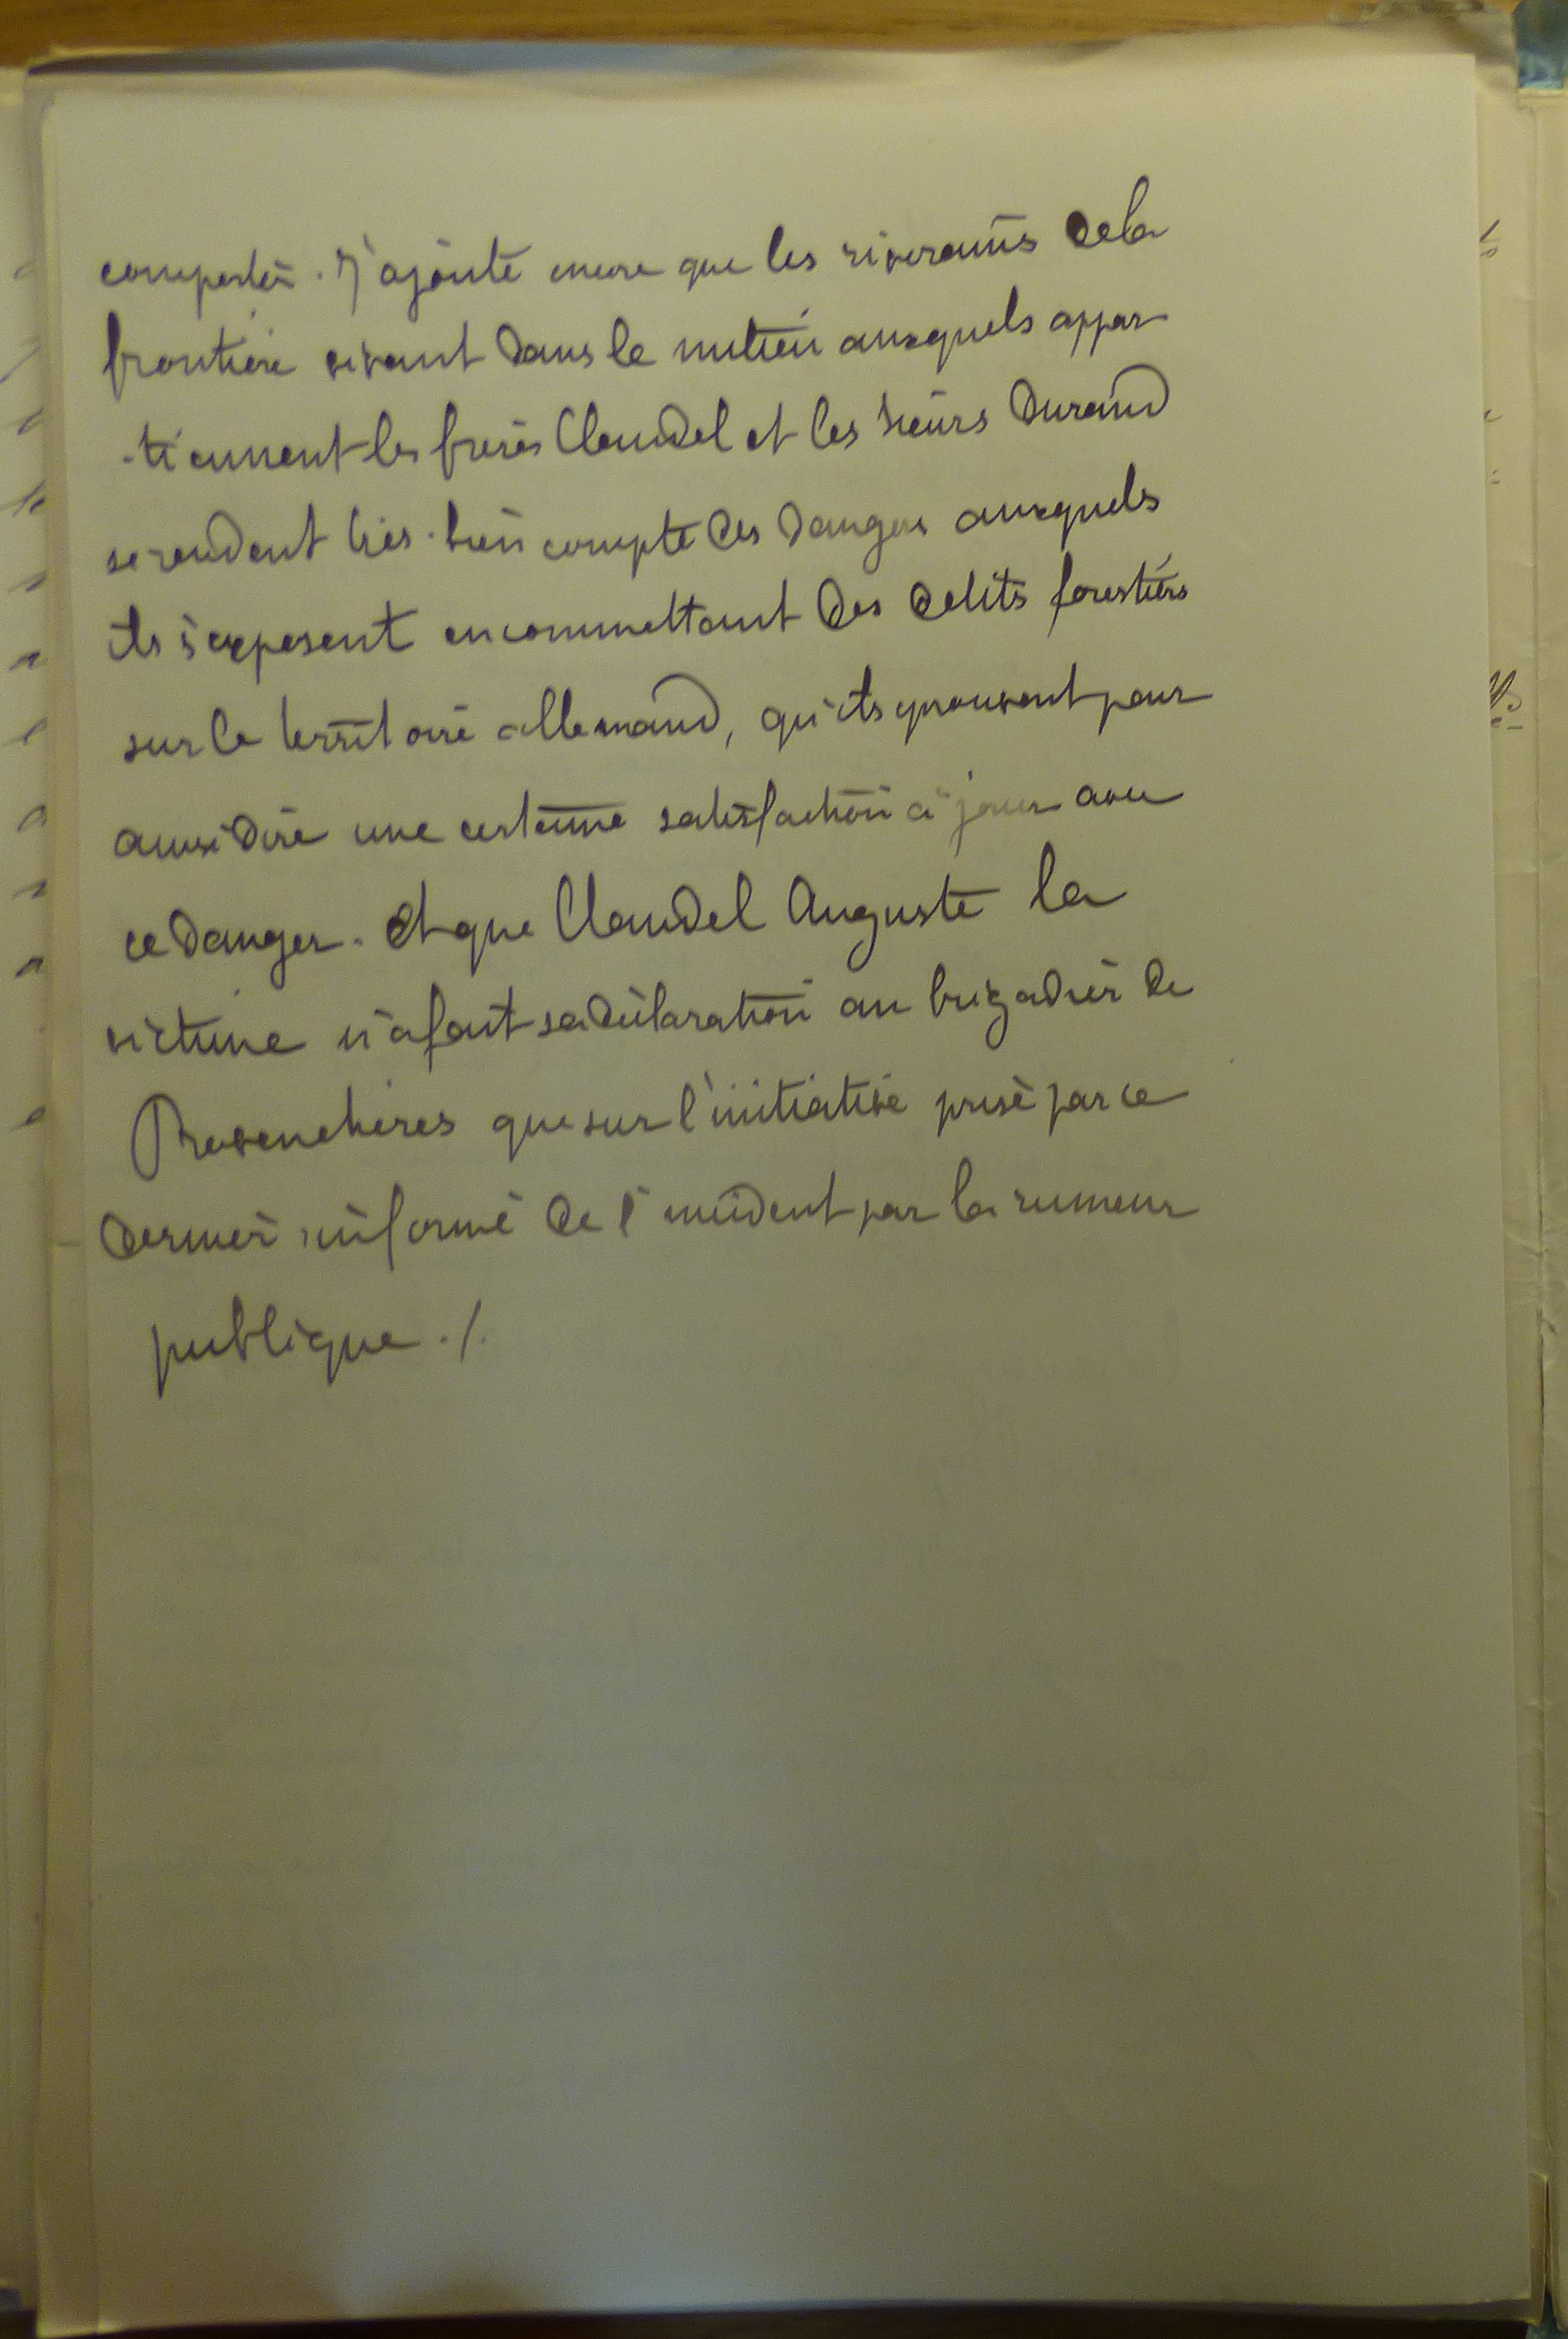 comporter. J'ajoute encore que les riverains de la
frontière vivant dans le milieu auxquels appar
-tiennent les frères Claudel et les sieurs Durand
se rendent très-bien compte des dangers auxquels
ils s'exposent en commettant des délits forestiers
sur le territoire allemand, qu'ils éprouvent pour
ainsi dire une certaine satisfaction à jouer avec
ce danger. Et que Claudel Auguste la
victime n'a fait sa déclaration au brigadier de
Provenchères que sur l'initiative prise par ce
dernier, informé de l'incident par la rumeur
publique ./.